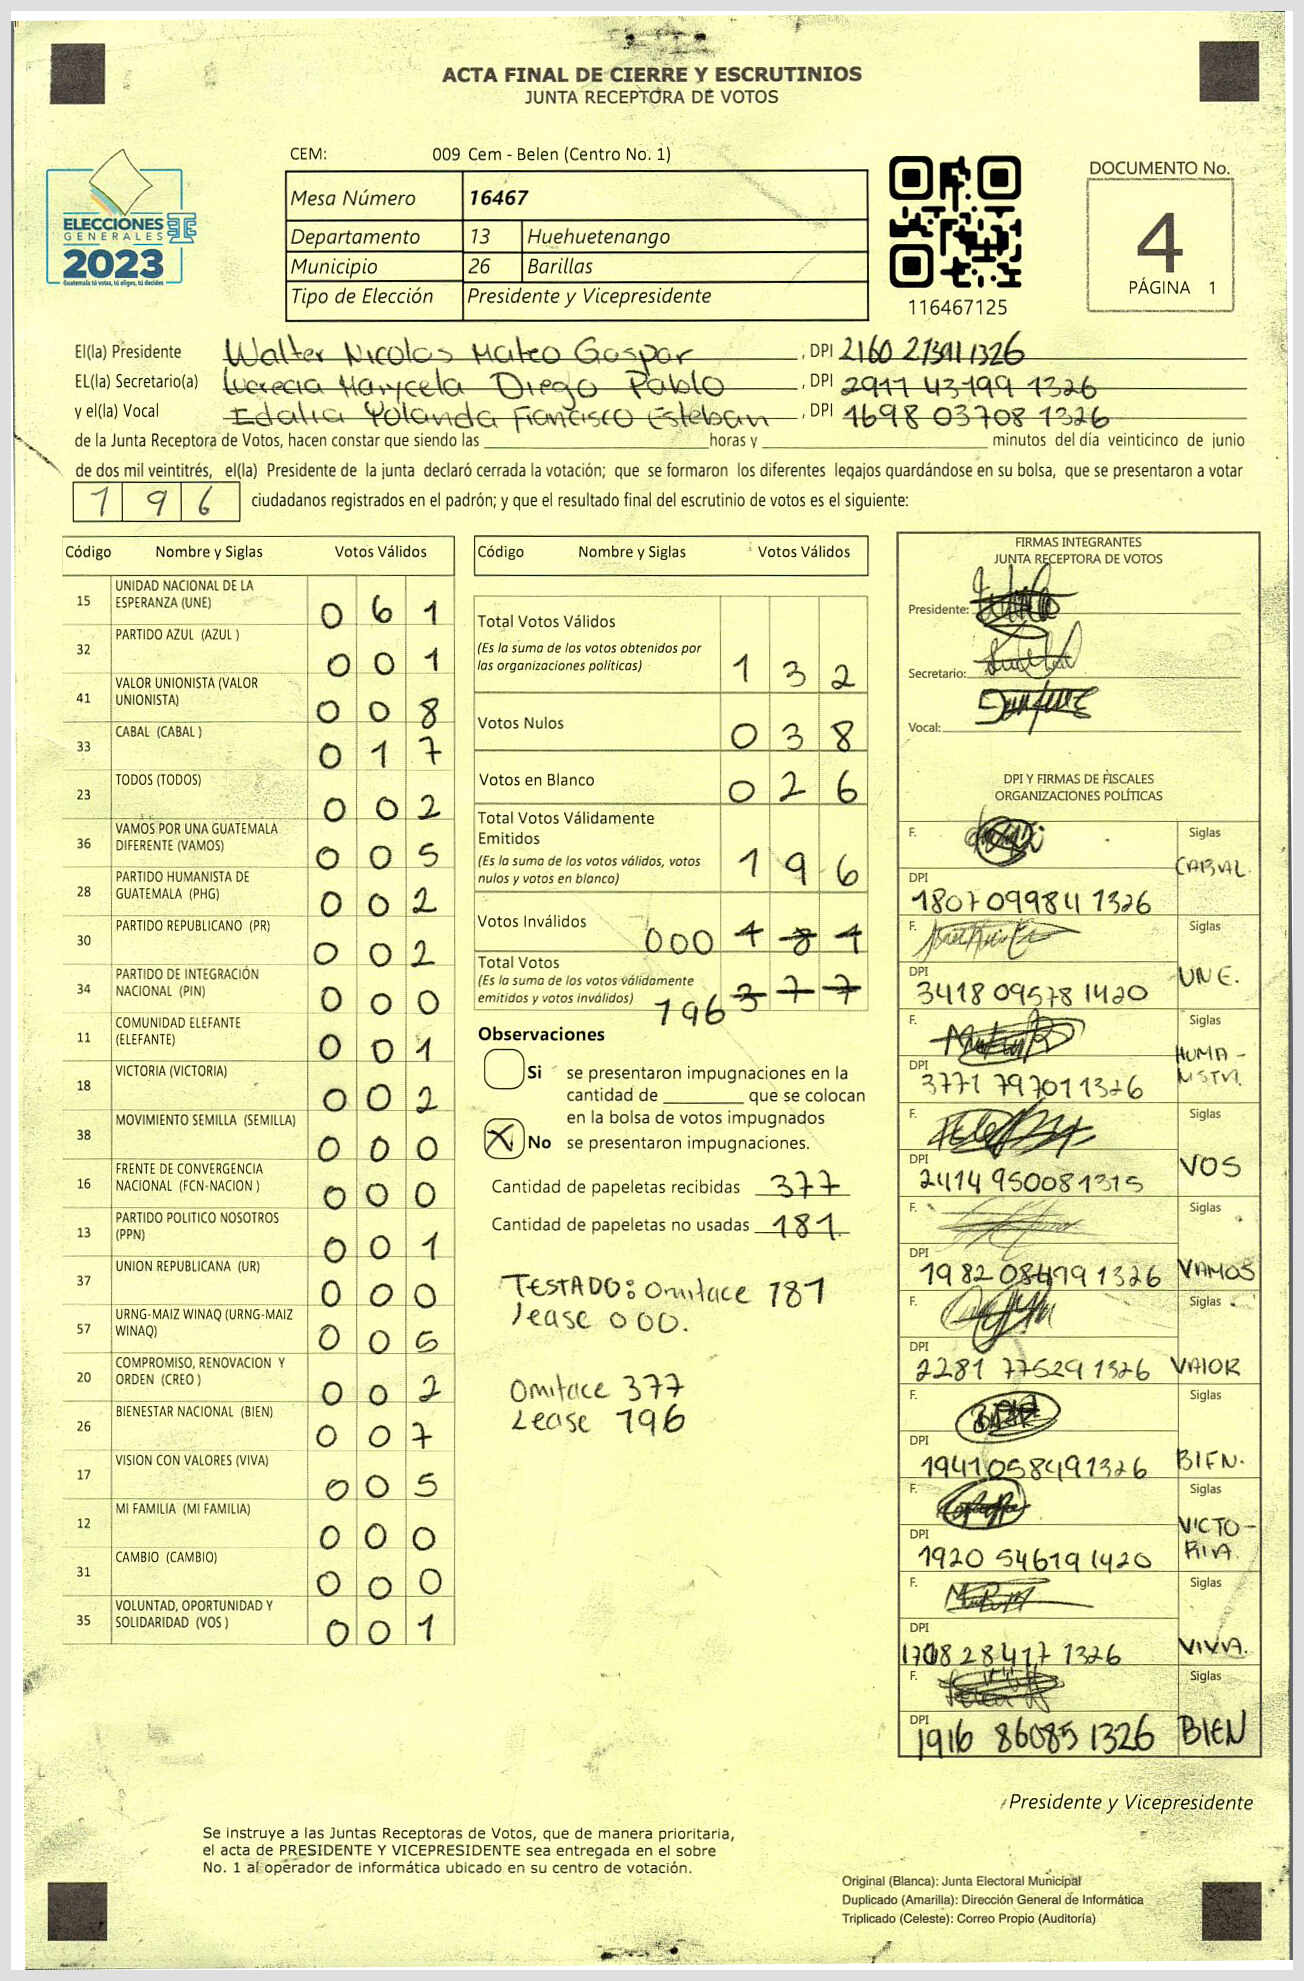 ACTA FINAL DE CIERRE Y ESCRUTINIOS
JUNTA RECEPTORA DE VOTOS
CEM: 009 Cem - Belen (Centro No. 1)
Mesa Número 16467
Departamento 13 Huehuetenango
Municipio 26 Barillas
Tipo de Elección Presidente y Vicepresidente
ELECCIONES
GENERALES
2023
Guatemala tú votas, tú eliges, tú decides
116467125
DOCUMENTO No.
4
PÁGINA 1
El(la) Presidente Walter Nicolas Mateo Gaspar, DPI 2160 27391 1326
EL(la) Secretario(a) Lucrecia Marycela Diego Pablo, DPI 2911 43199 1326
y el(la) Vocal Edalia Yolanda Francisco Esteban, DPI 1698 03708 1326
de la Junta Receptora de Votos, hacen constar que siendo las horas y minutos del día veinticinco de junio
de dos mil veintitrés, el(la) Presidente de la junta declaró cerrada la votación; que se formaron los diferentes legajos quardándose en su bolsa, que se presentaron a votar
196 ciudadanos registrados en el padrón; y que el resultado final del escrutinio de votos es el siguiente:
Código Nombre y Siglas Votos Válidos
15 UNIDAD NACIONAL DE LA ESPERANZA (UNE) 061
32 PARTIDO AZUL (AZUL ) 001
41 VALOR UNIONISTA (VALOR UNIONISTA) 008
33 CABAL (CABAL ) 017
23 TODOS (TODOS) 002
36 VAMOS POR UNA GUATEMALA DIFERENTE (VAMOS) 005
28 PARTIDO HUMANISTA DE GUATEMALA (PHG) 002
30 PARTIDO REPUBLICANO (PR) 002
34 PARTIDO DE INTEGRACIÓN NACIONAL (PIN) 000
11 COMUNIDAD ELEFANTE (ELEFANTE) 001
18 VICTORIA (VICTORIA) 002
38 MOVIMIENTO SEMILLA (SEMILLA) 000
16 FRENTE DE CONVERGENCIA NACIONAL (FCN-NACION ) 000
13 PARTIDO POLITICO NOSOTROS (PPN) 001
37 UNION REPUBLICANA (UR) 000
57 URNG-MAIZ WINAQ (URNG-MAIZ WINAQ)
20 COMPROMISO, RENOVACION Y ORDEN (CREO ) 002
26 BIENESTAR NACIONAL (BIEN) 007
17 VISION CON VALORES (VIVA) 005
12 MI FAMILIA (MI FAMILIA) 000
31 CAMBIO (CAMBIO) 000
35 VOLUNTAD, OPORTUNIDAD Y SOLIDARIDAD (VOS ) 001
Código Nombre y Siglas Votos Válidos
Total Votos Válidos
(Es la suma de los votos obtenidos por
las organizaciones políticas) 132
Votos Nulos 038
Votos en Blanco 026
Total Votos Válidamente
Emitidos
(Es la suma de los votos válidos, votos
nulos y votos en blanco) 196
Votos Inválidos 000 181
Total Votos
(Es la suma de los votos válidamente
emitidos y votos inválidos) 196 377
Observaciones
Si se presentaron impugnaciones en la
cantidad de que se colocan
en la bolsa de votos impugnados
X No se presentaron impugnaciones.
Cantidad de papeletas recibidas 377
Cantidad de papeletas no usadas 181
TESTADO: Omitace 181
lease 000.
Omitace 377
Lease 196
FIRMAS INTEGRANTES
JUNTA RECEPTORA DE VOTOS
Presidente:
Secretario:
Vocal:
DPI Y FIRMAS DE FISCALES
ORGANIZACIONES POLÍTICAS
F. Siglas
CABAL.
DPI
1807 09984 1326
F. Siglas
UNE.
DPI
3418 09578 1420
F. Siglas
HUMA-
NISTA.
DPI
3771 79701 1326
F. Siglas
VOS
DPI
2414 95008 1315
F. Siglas
VAMOS
DPI
1982 08499 1326
F. Siglas
VALOR
DPI
2281 77529 1326
F. Siglas
BIEN.
DPI
1941 05849 1326
F. Siglas
VICTO-
RIA.
DPI
1920 54619 1420
F. Siglas
VIVA.
DPI
1708 28417 1326
F. Siglas
BIEN
DPI
1916 86085 1326
Presidente y Vicepresidente
Se instruye a las Juntas Receptoras de Votos, que de manera prioritaria,
el acta de PRESIDENTE Y VICEPRESIDENTE sea entregada en el sobre
No. 1 al operador de informática ubicado en su centro de votación.
Original (Blanca): Junta Electoral Municipal
Duplicado (Amarilla): Dirección General de Informática
Triplicado (Celeste): Correo Propio (Auditoría)